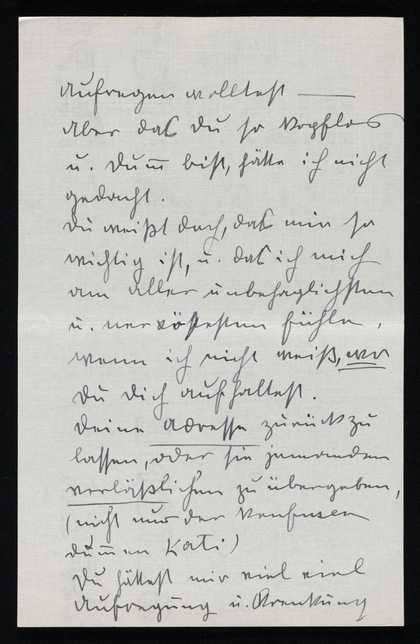 aufregen wolltest —
aber das du so kopflos
u. dum̅ bist, hätte ich nicht
gedacht.
Du weißt doch, das mir so
wichtig ist, u. das ich mich
am aller unbehaglichsten
u. nervösesten fühle,
wenn ich nicht weiß, wo
Du Dich aufhaltest.
Deine Adresse zurück zu
lassen, oder sie jemanden
verläßlichen zu übergeben,
(nicht nur der konfusen
dum̅en Kati)
Du hättest mir viel viel
Aufregung u. Kränkung